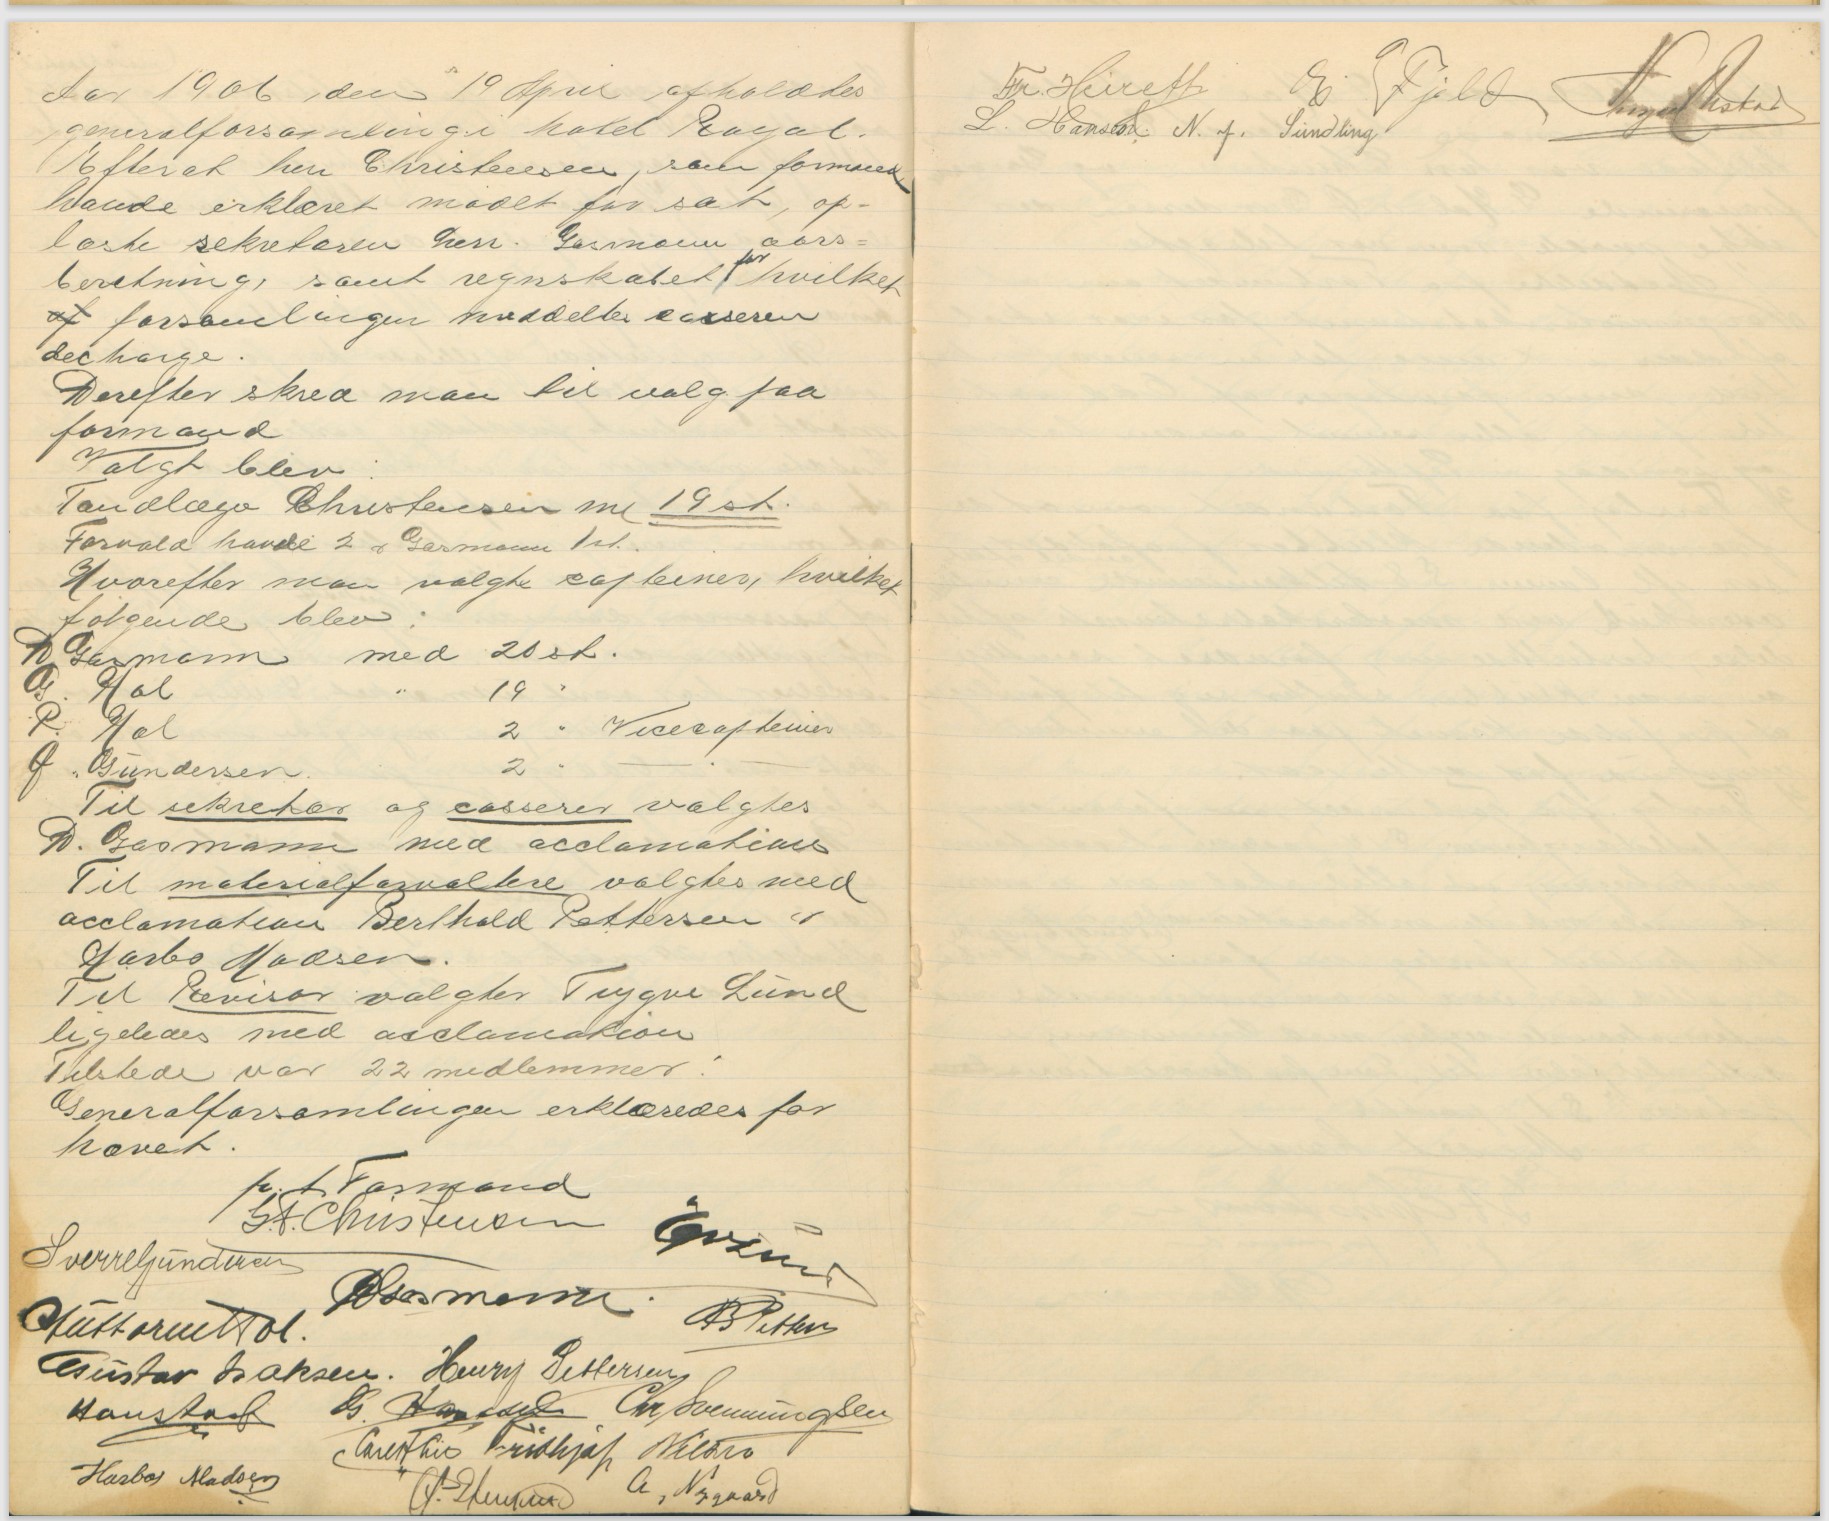 Aar 1906 den 19 April afholdtes
generalforsamling i hotel Royal.
Efterat herr Christensen, som formand
havde erklæret mødet for sat, op-
læste sekretæren herr. Gasmann aars=
beretning, samt regnskabet for hvilket
af forsamlingen meddeltes casseren
decharge.
Derefter skred man til valg paa
formand
Valgt blev:
Tandlæge Christensen m 19 st.
Forvald havde 2 & Gasmann 1 st.
Hvorefter man valgte capteiner, hvilket
følgende blev:
D Gasmann med 20 st.
G. Hol " 19 "
P. Hol 2 " Vicecapteiner
Gundersen 2 " — " —
Til sekretær og casserer valgtes
D. Gasmann med acclamation
Til materialforvaltere valgtes med
acclamation Berthold Pettersen &
Harbo Madsen.
Til Revisor valgtes Trygve Lund
ligeledes med acclamation
Tilstede var 22 medlemmer.
Generalforsamlingen erklæredes for
hævet.
p. t. Formand
G. A. Christensen
Sverre Gundersen
D Gasmann.
Guttorm Hol.
B Petters
Gustav Isaksen. Henry Pettersen
G. Hansen Chr. Svenningsen
Fridhjof Nilsen
Harbo Madsen
A. Nygaard
Fjeld
L. Hansen. N. J. Sundling